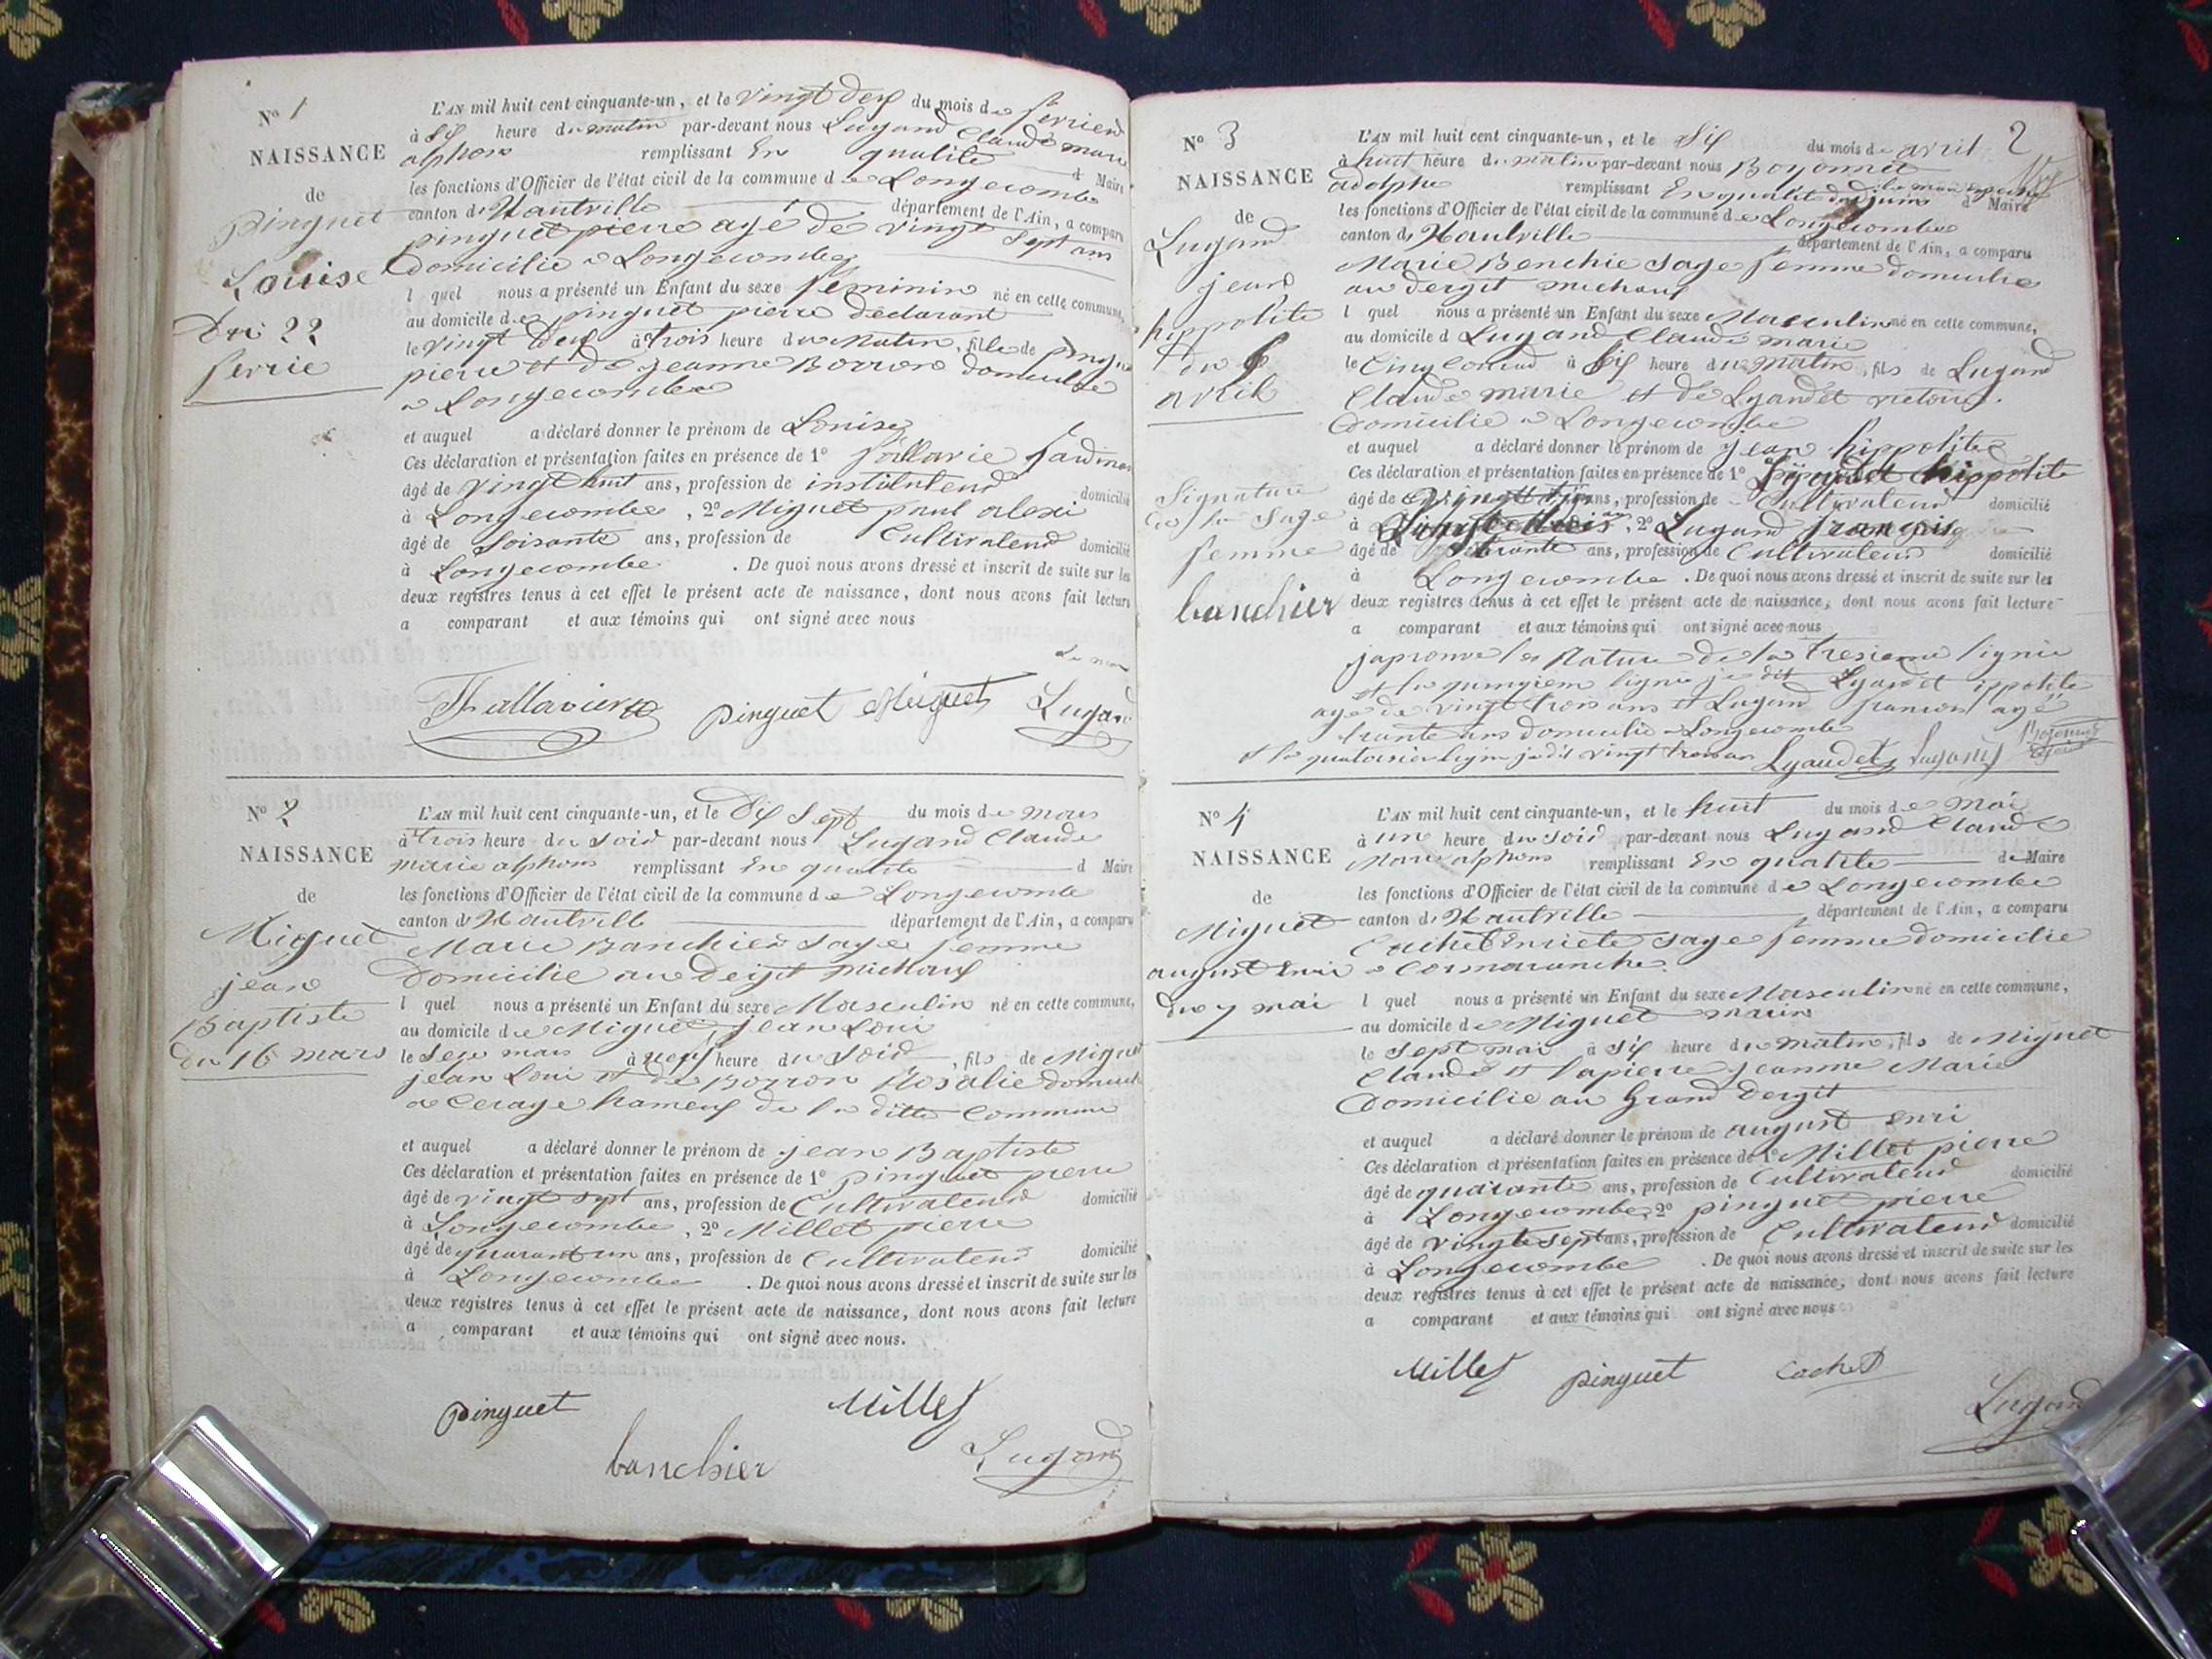 N° 1
NAISSANCE
de
Pinguet
Louise
Du 22
fevrie
L'AN mil huit cent cinquante-un, et le vingt deux du mois de fevrier
à six heure du matin par-devant nous Lugand Claude marie
alphons remplissant En qualité d Maire
les fonctions d'Officier de l'état civil de la commune de Longecombe
canton d'Hautville département de l'Ain, a comparu
pinguet pierre agé de vingt sept ans
Domicilié a Longecombe
l quel nous a présenté un Enfant du sexe feminin né en cette commune,
au domicile de pinguet pierre declarant
le vingt deux à trois heure du Matin, fille de pinguet
pierre et de jeanne Borron domicilié
a Longecombe
et auquel a déclaré donner le prénom de Louise
Ces déclaration et présentation faites en présence de 1° fallavie
âgé de vingt huit ans, profession de instituteur domicilié
à Longecombe, 2° Miguet paul alexi
âgé de soisante ans, profession de Cultivateur domicilié
à Longecombe. De quoi nous avons dressé et inscrit de suite sur les
deux registres tenus à cet effet le présent acte de naissance, dont nous avons fait lecture
a comparant et aux témoins qui ont signé avec nous
pinguet Miguet Lugand
N° 2
NAISSANCE
de
Miguet
jean
Baptiste
du 16 mars
L'AN mil huit cent cinquante-un, et le Dix sept du mois de mars
à trois heure du soir par-devant nous Lugand Claude
marie alphons remplissant En qualité d Maire
les fonctions d'Officier de l'état civil de la commune de Longecombe
canton d'Hautville département de l'Ain, a comparu
Marie Banchier sage femme
Domicilie au Dergit michaux
l quel nous a présenté un Enfant du sexe Masculin né en cette commune,
au domicile de Miguet jean Loui
le seze mars à neuf heure du soir, fils de Miguet
jean Loui et de Borron Rosalie domicilie
a Cerage hameux de la ditte Commune
et auquel a déclaré donner le prénom de jean Baptiste
Ces déclaration et présentation faites en présence de 1° pinguet pierre
âgé de vingt sept ans, profession de Cultivateur domicilié
à Longecombe, 2° Millet pierre
âgé de quarant un ans, profession de Cultivateur domicilié
à Longecombe. De quoi nous avons dressé et inscrit de suite sur les
deux registres tenus à cet effet le présent acte de naissance, dont nous avons fait lecture
a comparant et aux témoins qui ont signé avec nous.
pinguet Millet
banchier Lugand
2
N° 3
NAISSANCE
de
Lugand
jean
hippolite
du 6
avril
Signature
de la Sage
femme
banchier
L'AN mil huit cent cinquante-un, et le Six du mois de avril
à huit heure du matin par-devant nous Boyonnet
adolphe remplissant En qualité d'adjoint d Maire
les fonctions d'Officier de l'état civil de la commune de Longecombe
canton d'Hautville département de l'Ain, a comparu
Marie Benchie sage femme domicilie
au dergit michaux
l quel nous a présenté un Enfant du sexe Masculin né en cette commune,
au domicile d Lugand Claude marie
le Cinq Courand à six heure du matin, fils de Lugand
Claude marie et de Lyaudet victoire
Domicilie a Longecombe
et auquel a déclaré donner le prénom de jean hippolite
Ces déclaration et présentation faites en présence de 1° Lyaudet hippolite
âgé de vingt trois ans, profession de Cultivateur domicilié
à 2° Lugand françois
âgé de trante ans, profession de Cultivateur domicilié
à Longecombe. De quoi nous avons dressé et inscrit de suite sur les
deux registres tenus à cet effet le présent acte de naissance, dont nous avons fait lecture
a comparant et aux témoins qui ont signé avec nous
japrouve la Rature de la tresieme lignie
et la quinzieme ligne je dit Lyaudet ippolite
age de vingt trois ans et Lugand francois agé
trante ans domicilie a Longecombe
et la quatorsieme ligne je dis vingt trois ans Lyaudet Lugand
N° 4
NAISSANCE
de
Miguet
august Enri
du 7 mai
L'AN mil huit cent cinquante-un, et le huit du mois de Mai
à un heure du soir par-devant nous Lugand Claude
Marie alphons remplissant En qualité de Maire
les fonctions d'Officier de l'état civil de la commune de Longecombe
canton d'Hautville département de l'Ain, a comparu
Cachet Enriete sage femme domicilie
a Cormaranche
l quel nous a présenté un Enfant du sexe Masculin né en cette commune,
au domicile de Miguet
le sept mai à six heure du matin, fils de Miguet
Claude et lapierre jeanne Marie
Domicilie au Grand Dergit
et auquel a déclaré donner le prénom de august enri
Ces déclaration et présentation faites en présence de 1° Millet pierre
âgé de quarante ans, profession de Cultivateur domicilié
à Longecombe, 2° pinguet pierre
âgé de vingt sept ans, profession de Cultivateur domicilié
à Longecombe. De quoi nous avons dressé et inscrit de suite sur les
deux registres tenus à cet effet le présent acte de naissance, dont nous avons fait lecture
a comparant et aux témoins qui ont signé avec nous
Millet pinguet Cachet
Lugand